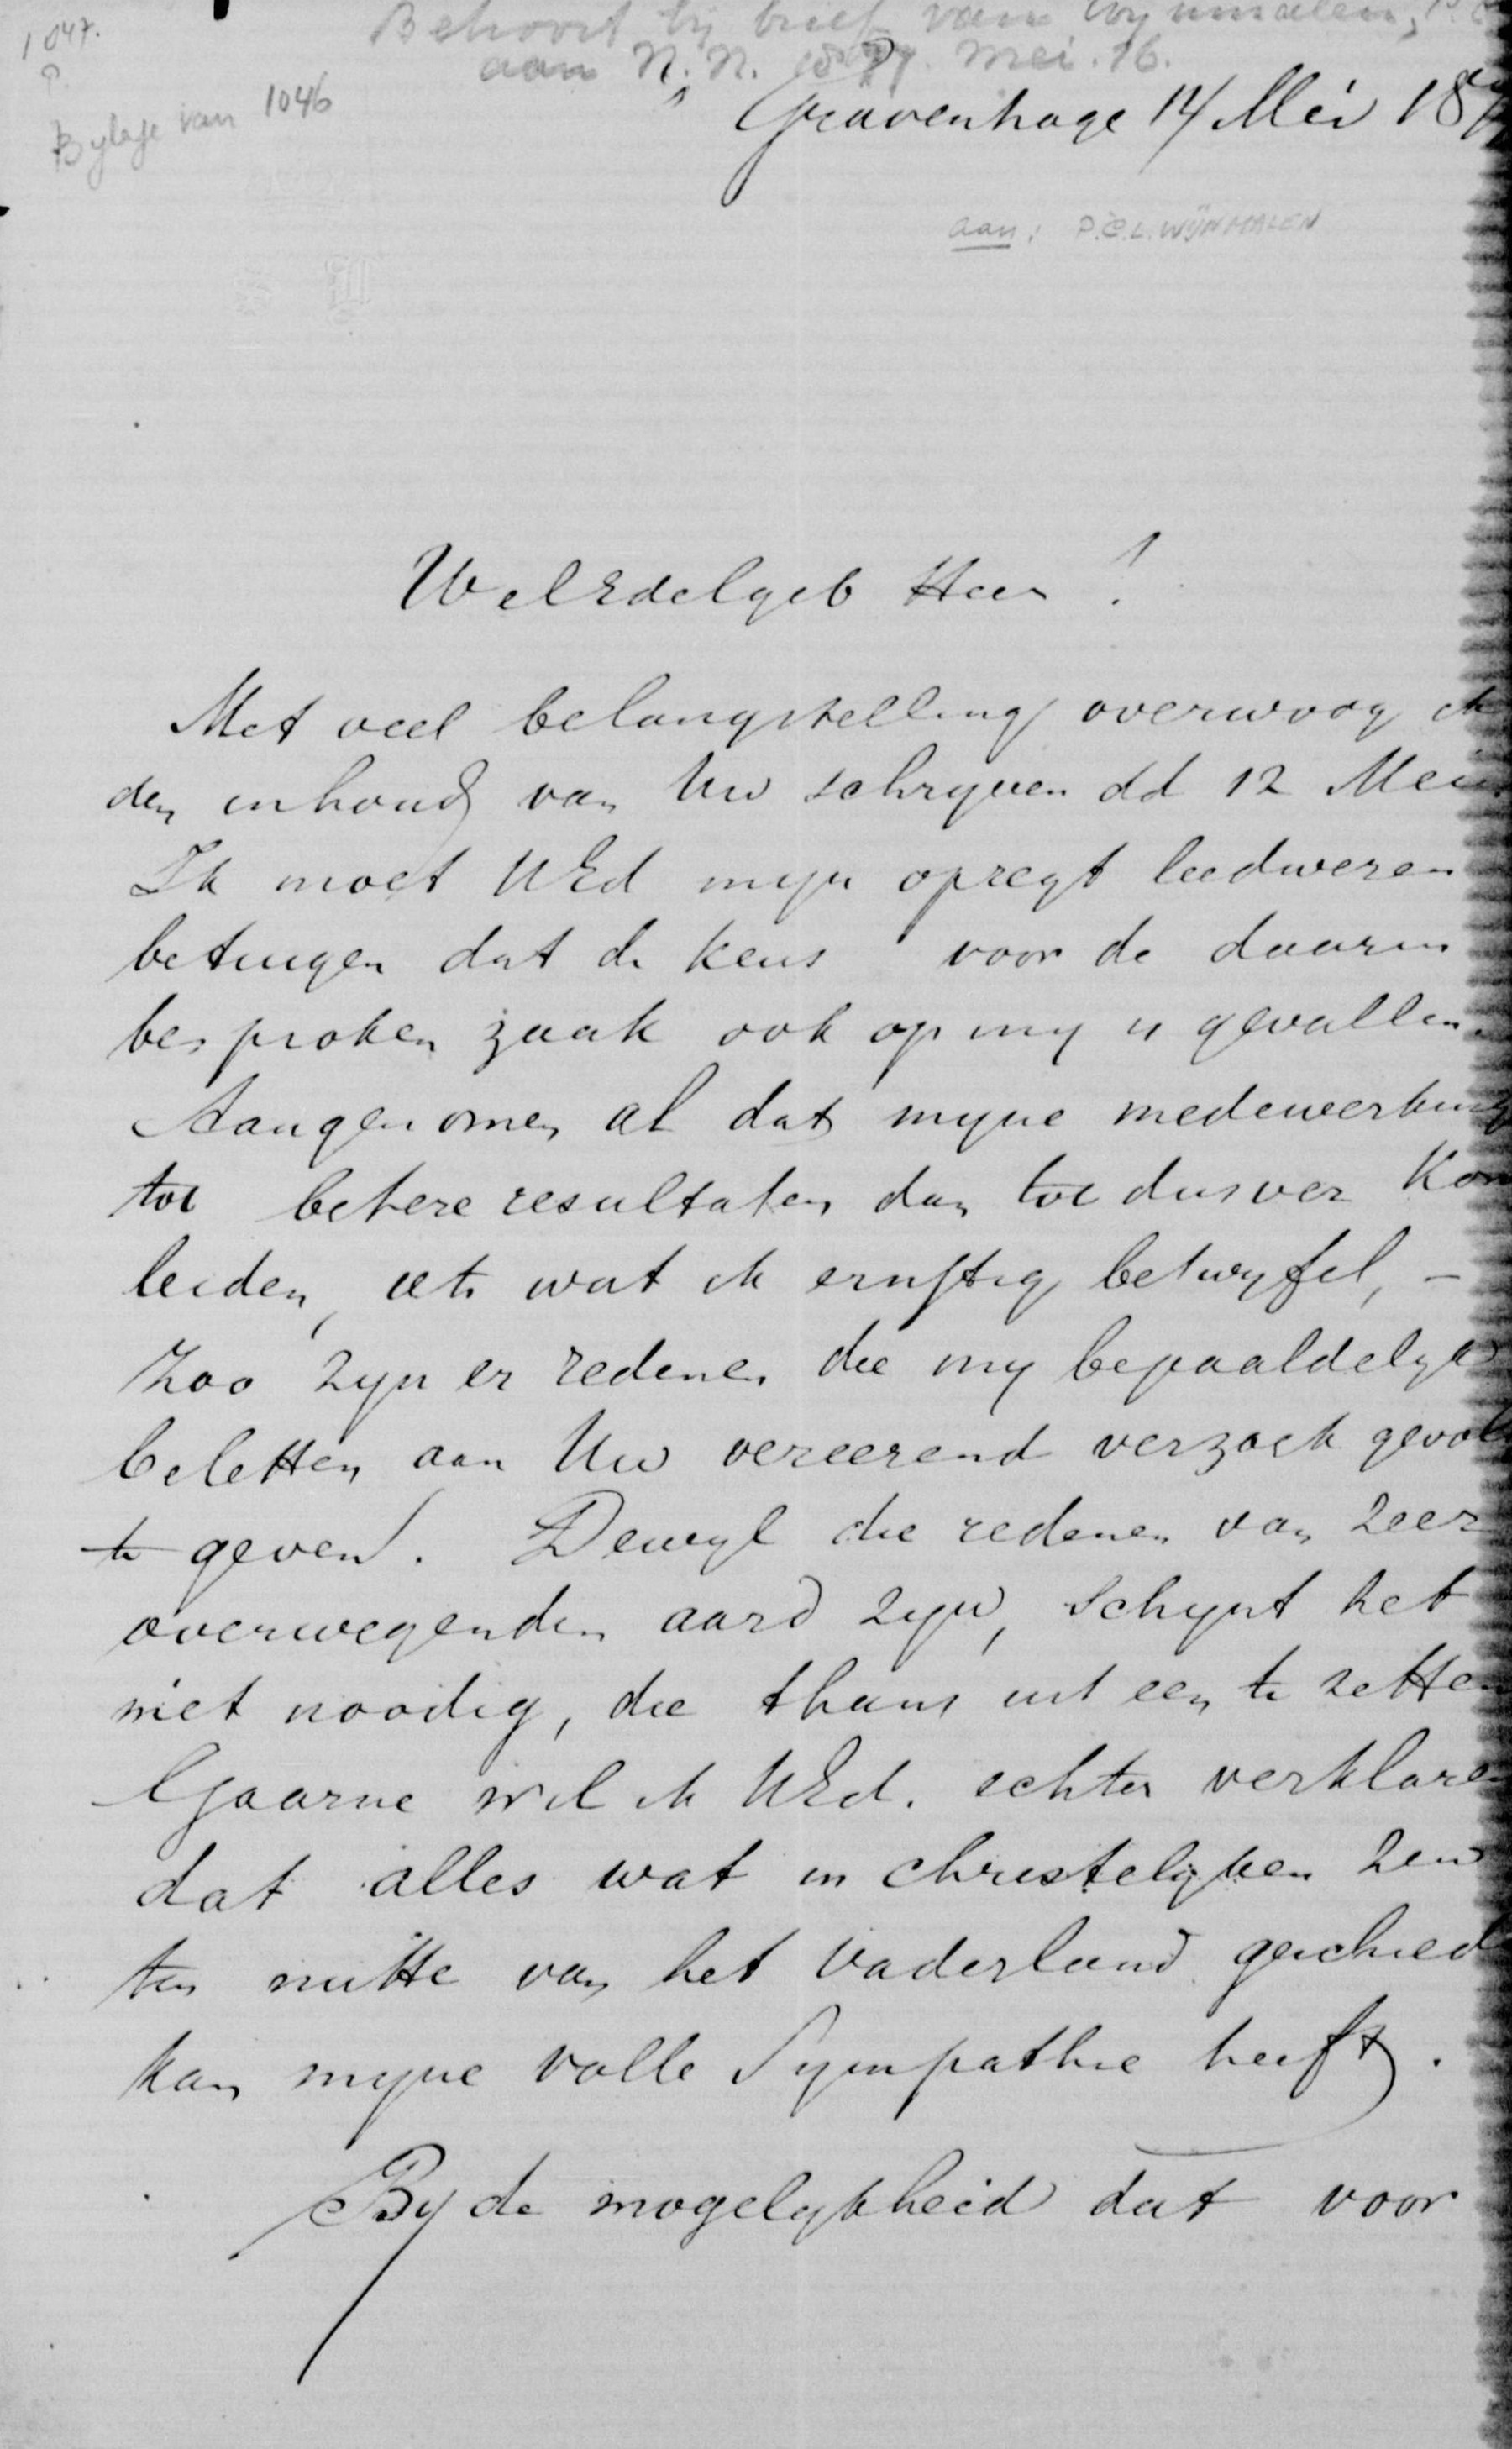 1047.
Behoort bij brief van Wynmalen,
aan N.N. 1877. Mei. 16.
Bylage van 1046
'Gravenhage 14 Mei 18
aan: P.C.L. WIJNMALEN
WelEdelgeb Heer!
Met veel belangstelling overwoog ik
den inhoud van Uw schryven dd 12 Mei.
Ik moet UEd myn opregt leedwezen
betuigen dat de keus voor de daarin
besproken zaak ook op my is gevallen.
Aangenomen al dat myne medewerking
tot betere resultaten dan tot dusver kon
leiden, iets wat ik ernstig betwyfel, –
Zoo zyn er redenen die my bepaaldelyk
beletten aan Uw vereerend verzoek gevolg
te geven. Dewyl die redenen van zeer
overwegenden aard zyn, schynt het
niet noodig, die thans uit een te zetten
Gaarne wil ik UEd. echter verklaren
dat alles wat in christelyken zin
ten nutte van het Vaderland geschied
kan myne volle Sympathie heeft.
By de mogelykheid dat voor